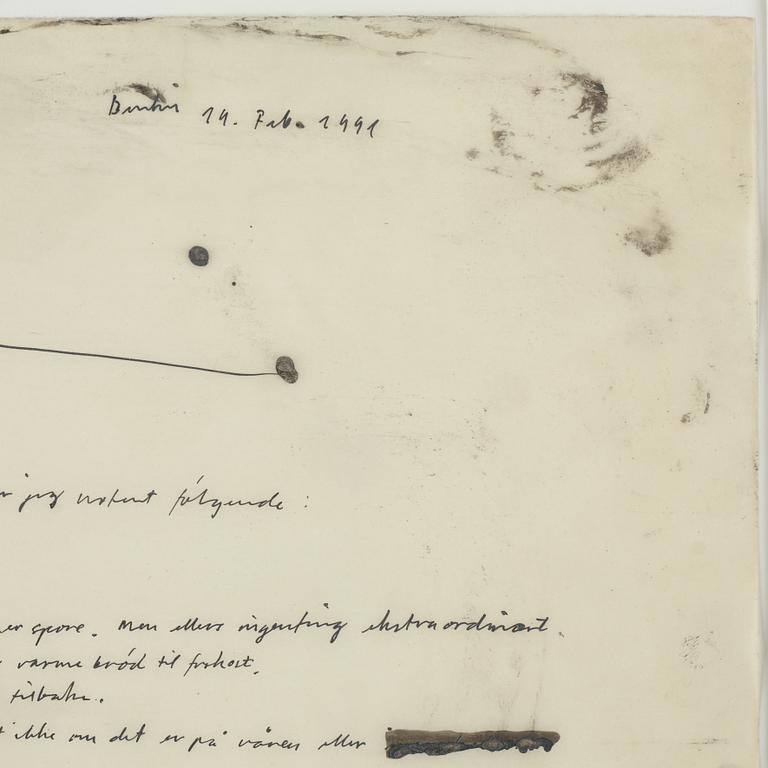 19. Feb. 1991
jeg notert følgende :
spore. Men ellers ingenting ekstraordinært.
varme brød til frokost.
tilbake.
ikke om det er på våren eller